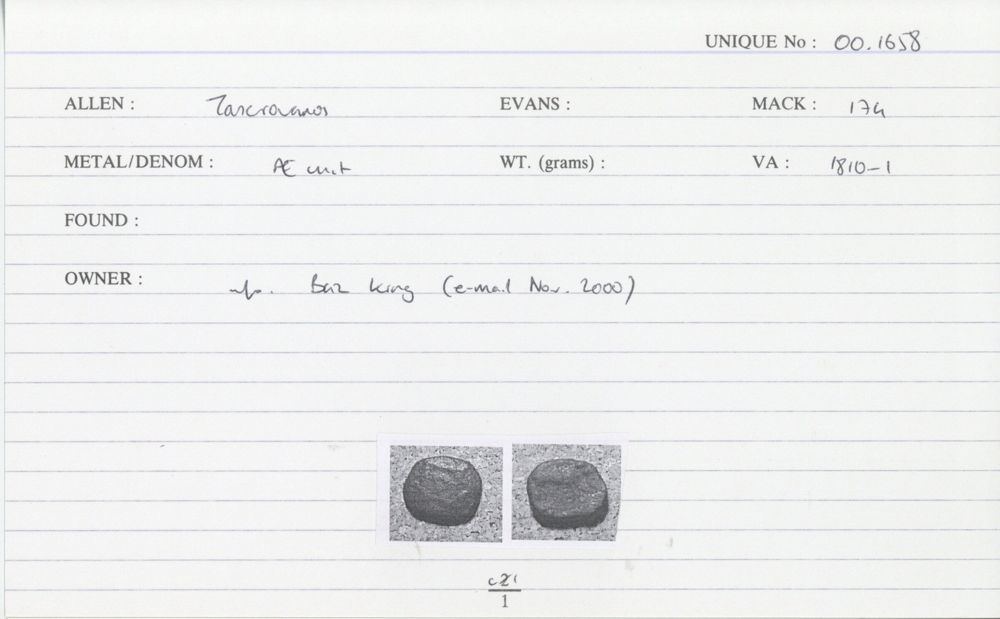 UNIQUE No : 00.1658
ALLEN : Tasciovanos EVANS : MACK : 174
METAL/DENOM : Æ unit WT. (grams) : VA : 1810-1
FOUND :
OWNER : King (e-mail Nov. 2000)
1